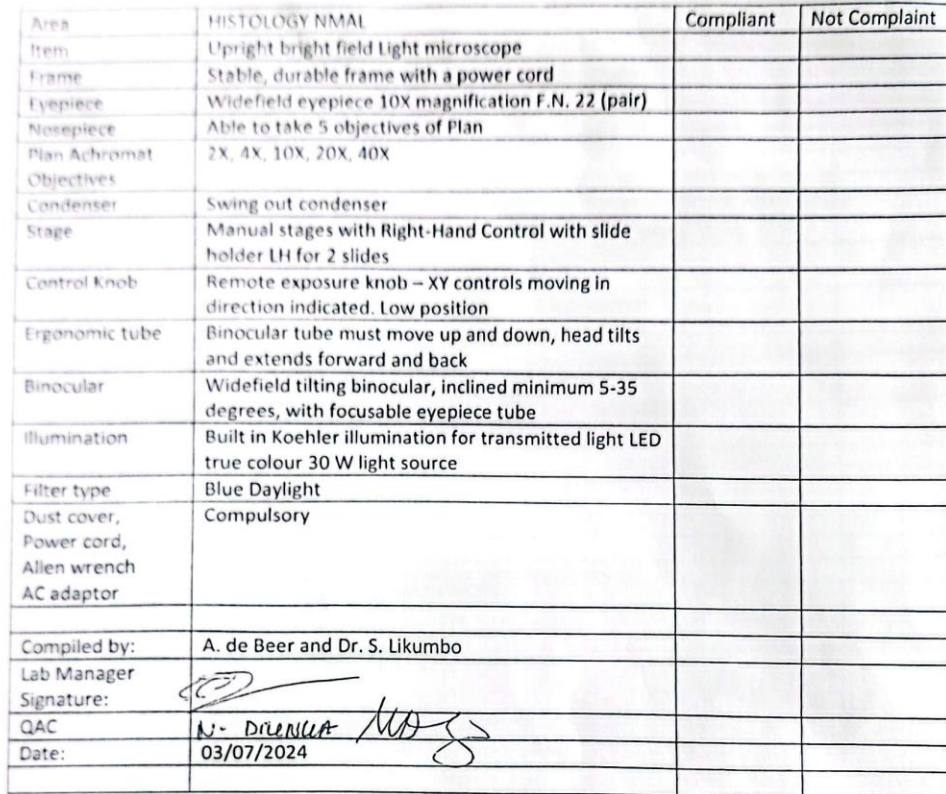 Area HISTOLOGY NMAL Compliant Not Complaint
Item Upright bright field Light microscope
Frame Stable, durable frame with a power cord
Eyepiece Widefield eyepiece 10X magnification F.N. 22 (pair)
Nosepiece Able to take 5 objectives of Plan
Plan Achromat 2X, 4X, 10X, 20X, 40X
Objectives
Condenser Swing out condenser
Stage Manual stages with Right-Hand Control with slide
holder LH for 2 slides
Control Knob Remote exposure knob – XY controls moving in
direction indicated. Low position
Ergonomic tube Binocular tube must move up and down, head tilts
and extends forward and back
Binocular Widefield tilting binocular, inclined minimum 5-35
degrees, with focusable eyepiece tube
Illumination Built in Koehler illumination for transmitted light LED
true colour 30 W light source
Filter type Blue Daylight
Dust cover, Compulsory
Power cord,
Allen wrench
AC adaptor
Compiled by: A. de Beer and Dr. S. Likumbo
Lab Manager
Signature:
QAC N-
Date: 03/07/2024